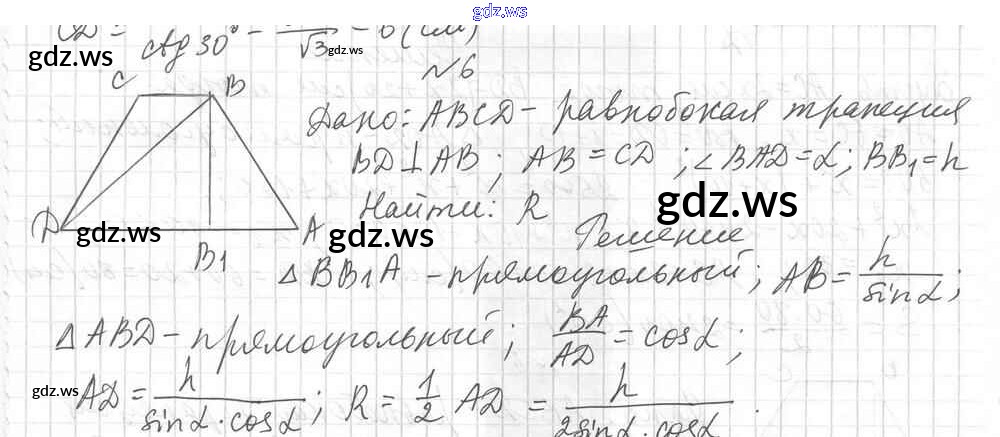 gdz.ws
CD = ctg 30° - √3 - 6 (см)
gdz.ws
gdz.ws
№6
C B
Дано: ABCD - равнобокая трапеция
BD ⊥ AB ; AB = CD ; ∠BAD = α ; BB₁ = h
Найти: R
gdz.ws
D A
gdz.ws
gdz.ws
B₁
Решение
△BB₁A - прямоугольный; AB = h / sin α ;
△ABD - прямоугольный; BA / AD = cos α ;
gdz.ws
AD = h / sin α · cos α ; R = 1/2 AD = h / 2 sin α · cos α .
gdz.ws
gdz.ws